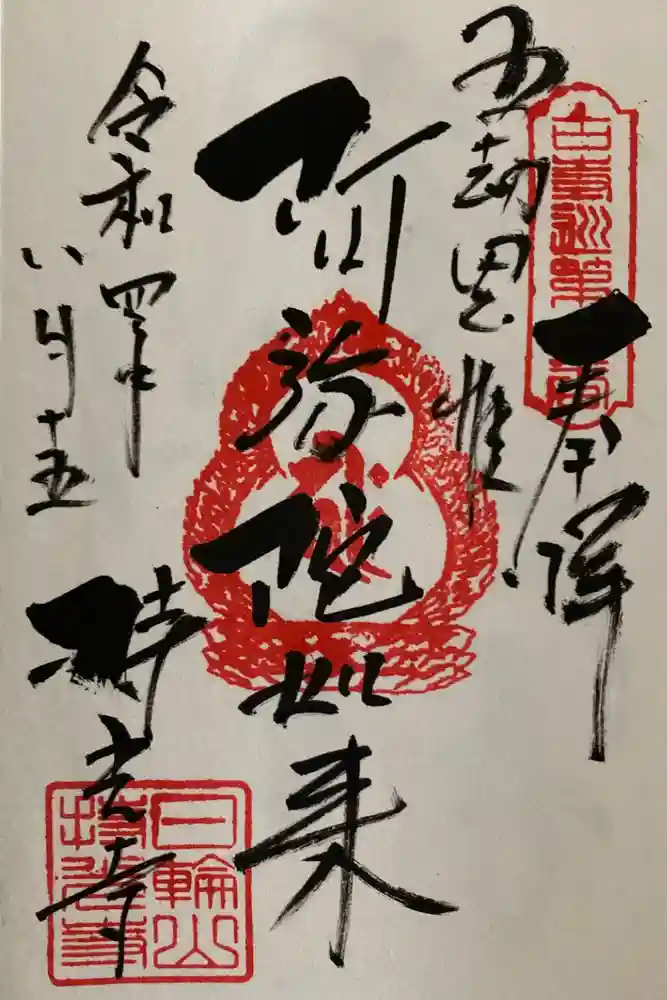 奉拝
五劫思惟
阿弥陀如来
令和四年
八月十五
持光寺
日輪山
持光寺